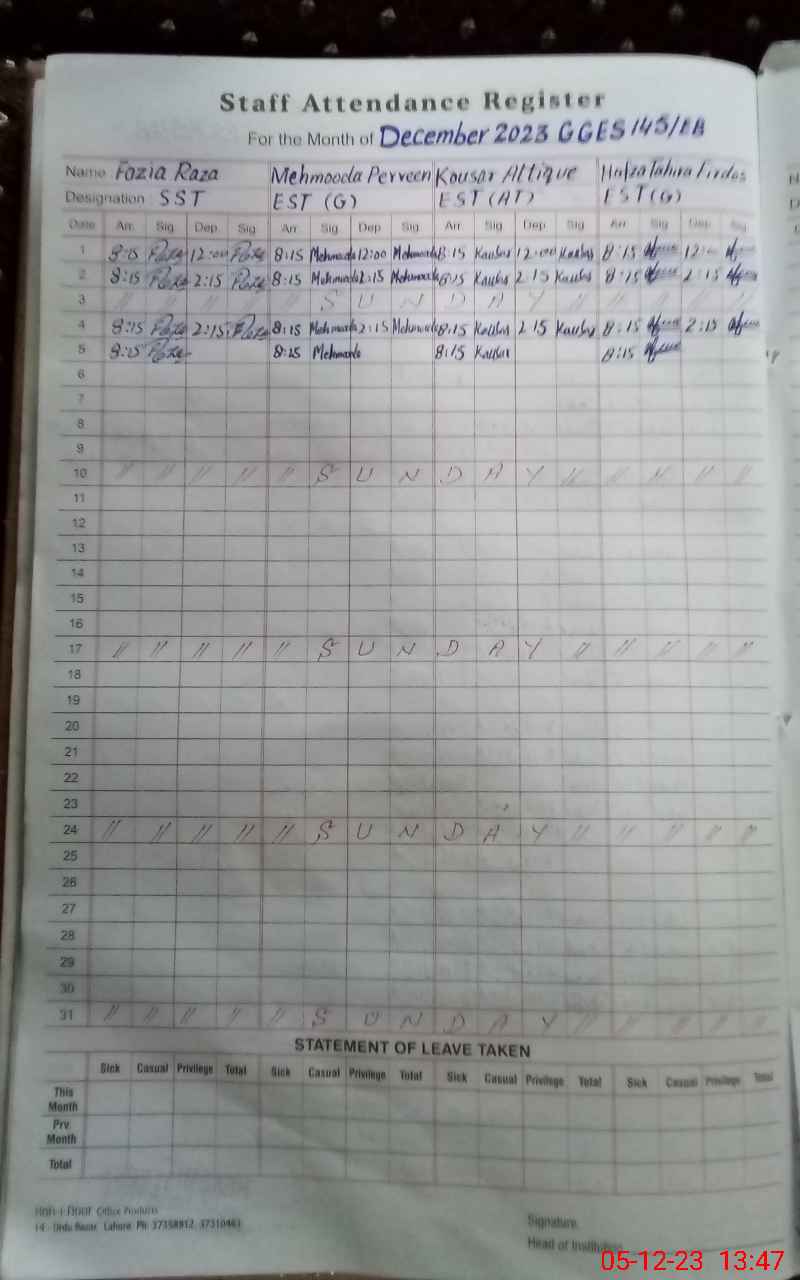 Staff Attendance Register
For the Month of December 2023 GGES 145/EB
Name Fozia Raza Mehmooda Perveen Kousar Attique Hafza Tahira Firdos
Designation SST EST (G) EST (AT) EST (G)
Date Arr. Sig Dep. Sig Arr Sig Dep Sig Arr Sig Dep Sig Arr Sig Dep Sig
1 8:15 12:00 8:15 Mehmooda 12:00 Mehmooda 8:15 Kausar 12:00 Kausar 8:15 12:00
2 8:15 2:15 8:15 Mehmooda 2:15 Mehmooda 8:15 Kausar 2:15 Kausar 8:15 2:15
3 // // // // // S U N D A Y // // // // //
4 8:15 2:15 8:15 Mehmooda 2:15 Mehmooda 8:15 Kausar 2:15 Kausar 8:15 2:15
5 8:15 8:15 Mehmooda 8:15 Kausar 8:15
6
7
8
9
10 // // // // // S U N D A Y // // // // //
11
12
13
14
15
16
17 // // // // // S U N D A Y // // // // //
18
19
20
21
22
23
24 // // // // // S U N D A Y // // // // //
25
26
27
28
29
30
31 // // // // // S U N D A Y // // // // //
STATEMENT OF LEAVE TAKEN
Sick Casual Privilege Total Sick Casual Privilege Total Sick Casual Privilege Total Sick Casual Privilege Total
This
Month
Prv.
Month
Total
Office Products
Urdu Bazar, Lahore. Ph: 37358912, 37310461
Signature
Head of Institution
05-12-23 13:47